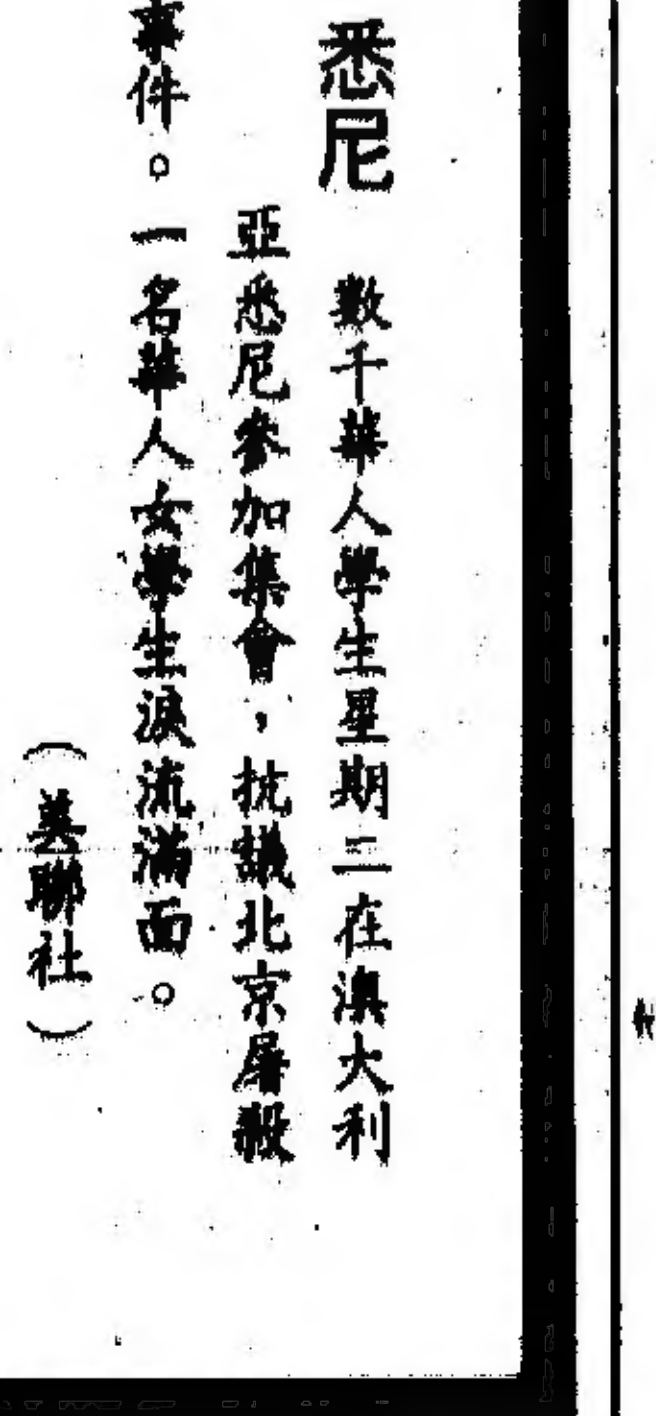 悉尼 數千華人學生星期二在澳大利
亞悉尼參加集會，抗議北京屠殺
事件。一名華人女學生淚流滿面。
（美聯社）